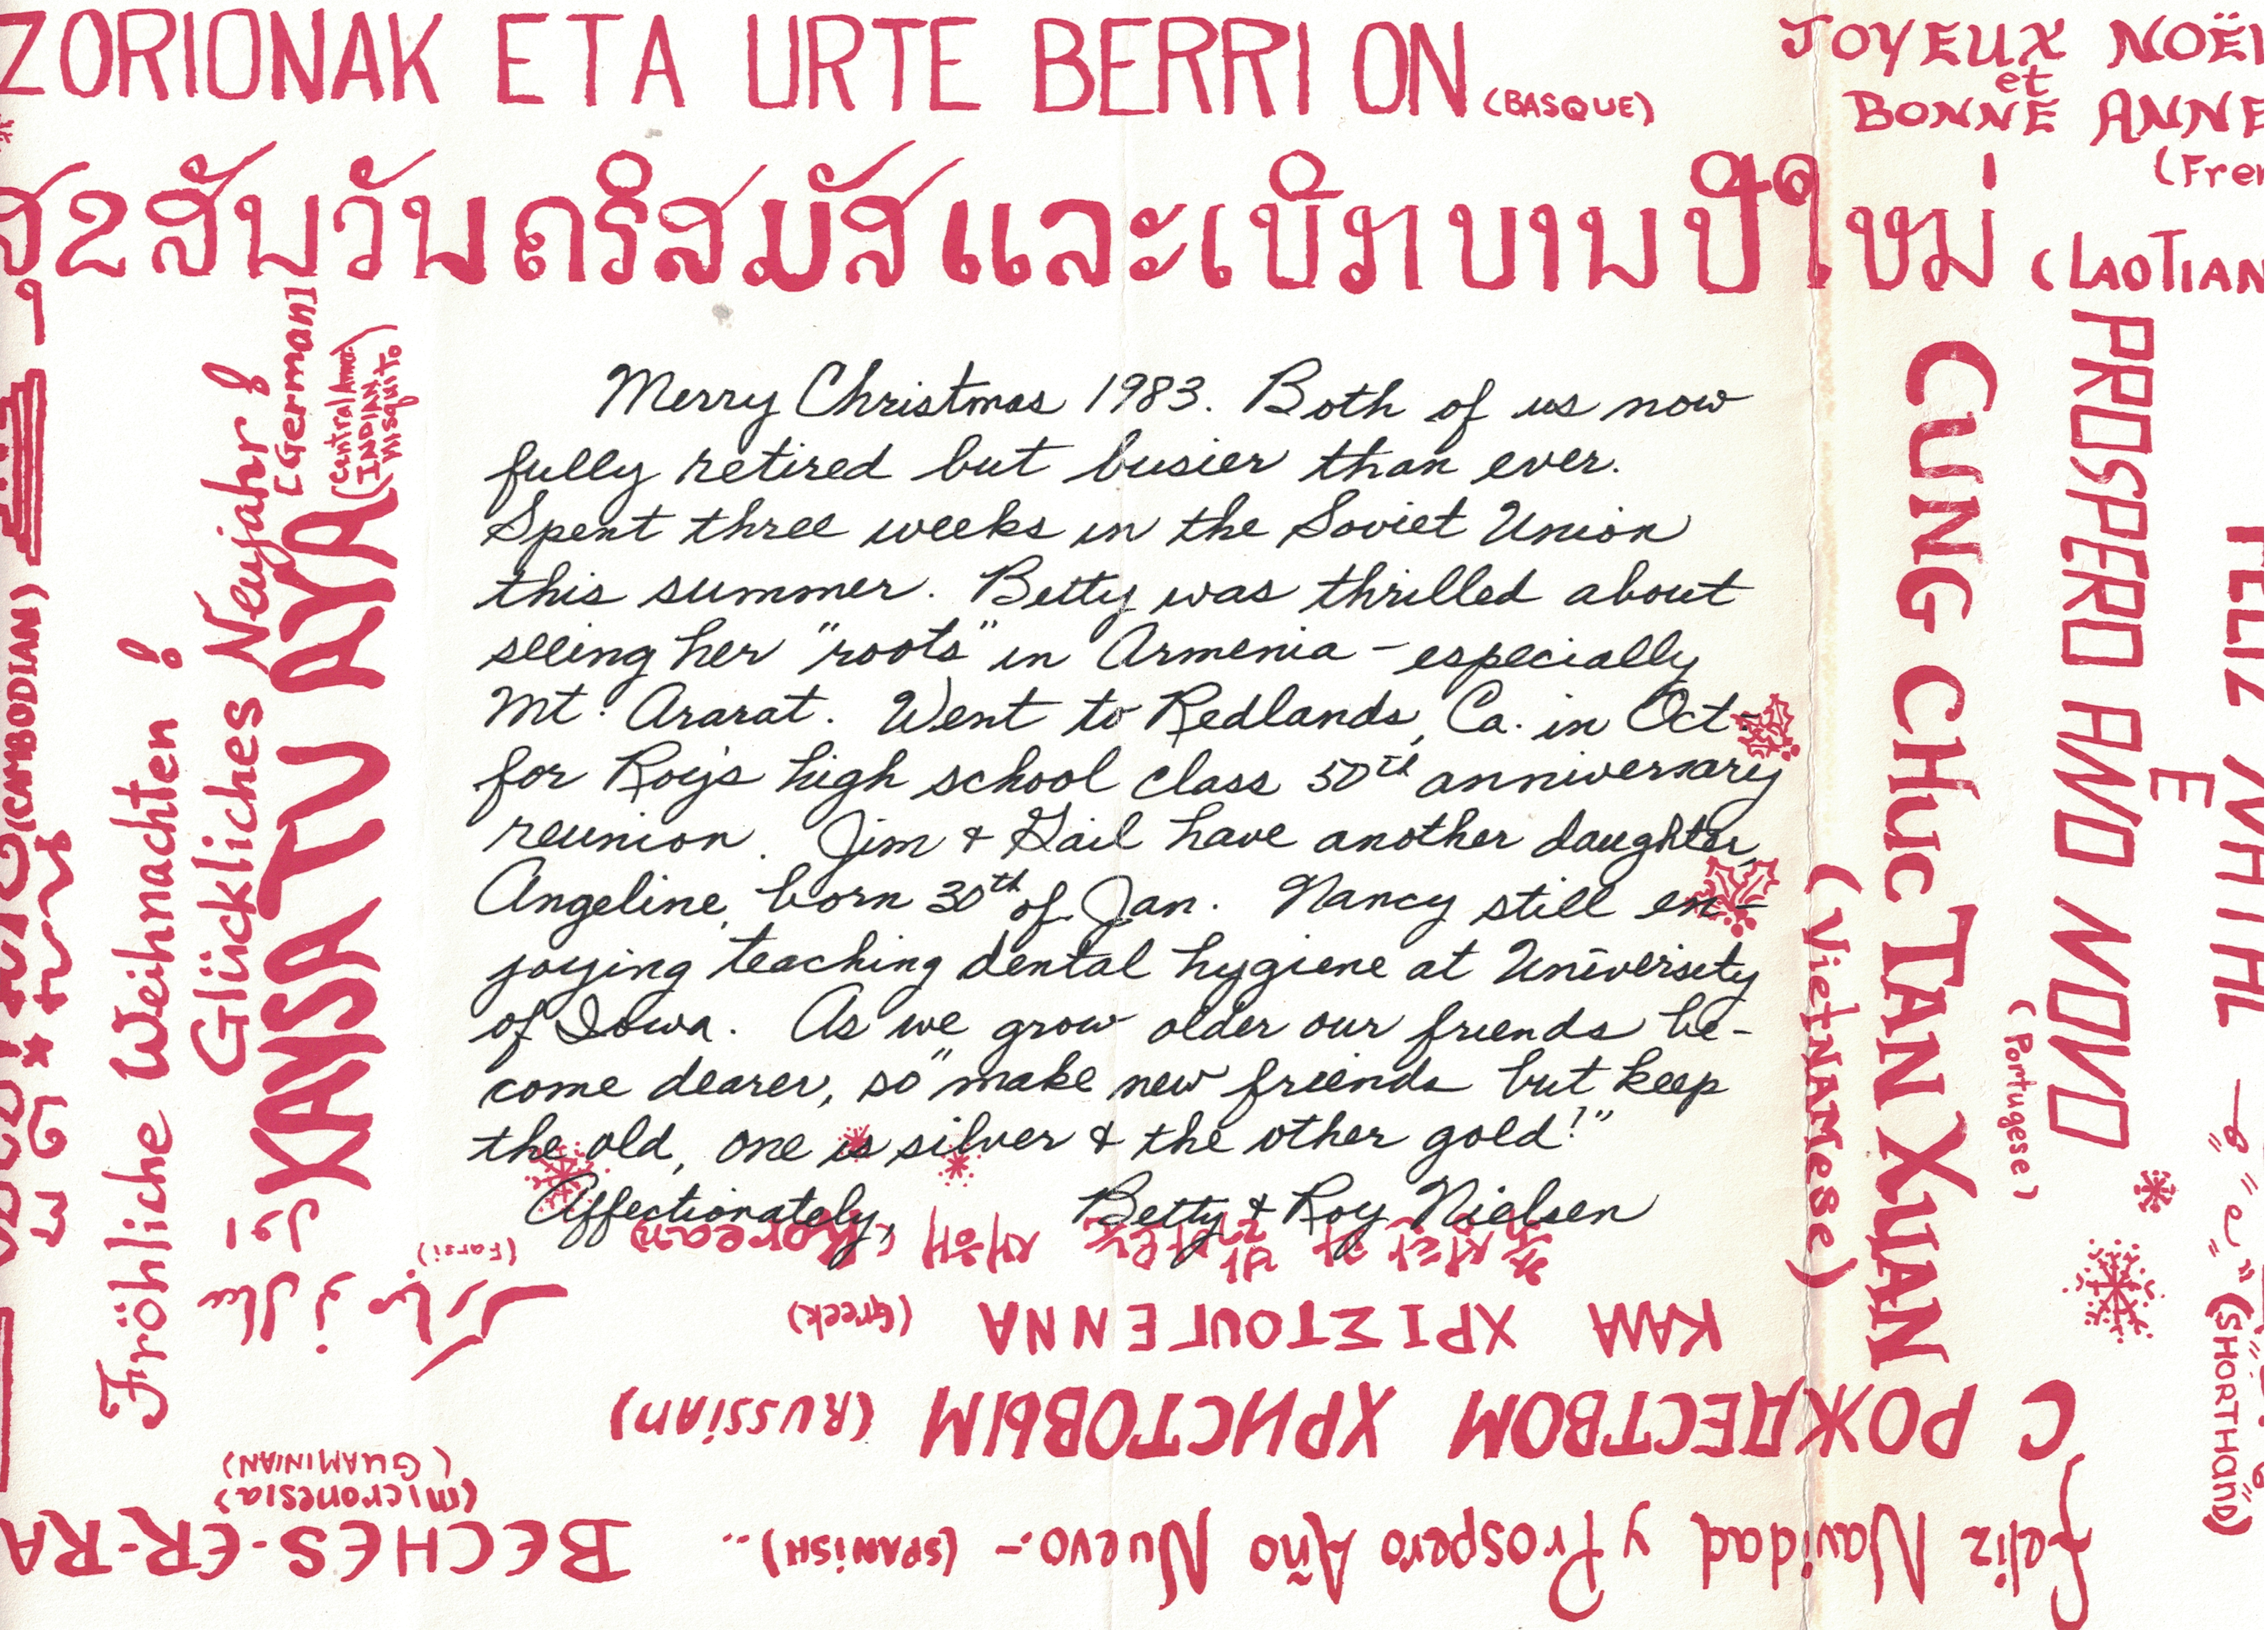 ZORIONAK ETA URTE BERRI ON (BASQUE)
JOYEUX NOËL
et
BONNE ANNE
(Fren
(LAOTIAN
Merry Christmas 1983. Both of us now
fully retired but busier than ever.
Spent three weeks in the Soviet Union
this summer. Betty was thrilled about
seeing her "roots" in Armenia - especially
Mt. Ararat. Went to Redlands, Ca. in Oct.
for Roy's high school class 50th anniversary
reunion. Jim & Gail have another daughter,
Angeline, born 30th of Jan. Nancy still en-
joying teaching dental hygiene at University
of Iowa. As we grow older our friends be-
come dearer, so "make new friends but keep
the old, one is silver & the other gold!"
Affectionately, Betty & Roy Nielsen
CUNG CHUC TAN XUAN
(VietNAMese)
PROSPERO ANO NOVO
(Portugese)
FELIZ NATAL
E
(SHORTHAND)
(CAMBODIAN)
Fröhliche Weihnachten!
Glückliches Neujahr!
(German)
KAYSA TU AYA
(Central Amer.
INDIAN
Misquito)
(Farsi)
새해 (Korean)
ΚΑΛΑ ΧΡΙΣΤΟΥΓΕΝΝΑ (Greek)
С РОЖДЕСТВОМ ХРИСТОВЫМ (RUSSIAN)
Feliz Navidad y Prospero Año Nuevo.- (SPANISH)..
BECHES-ER-RA
(Micronesia)
(GUAMINIAN)